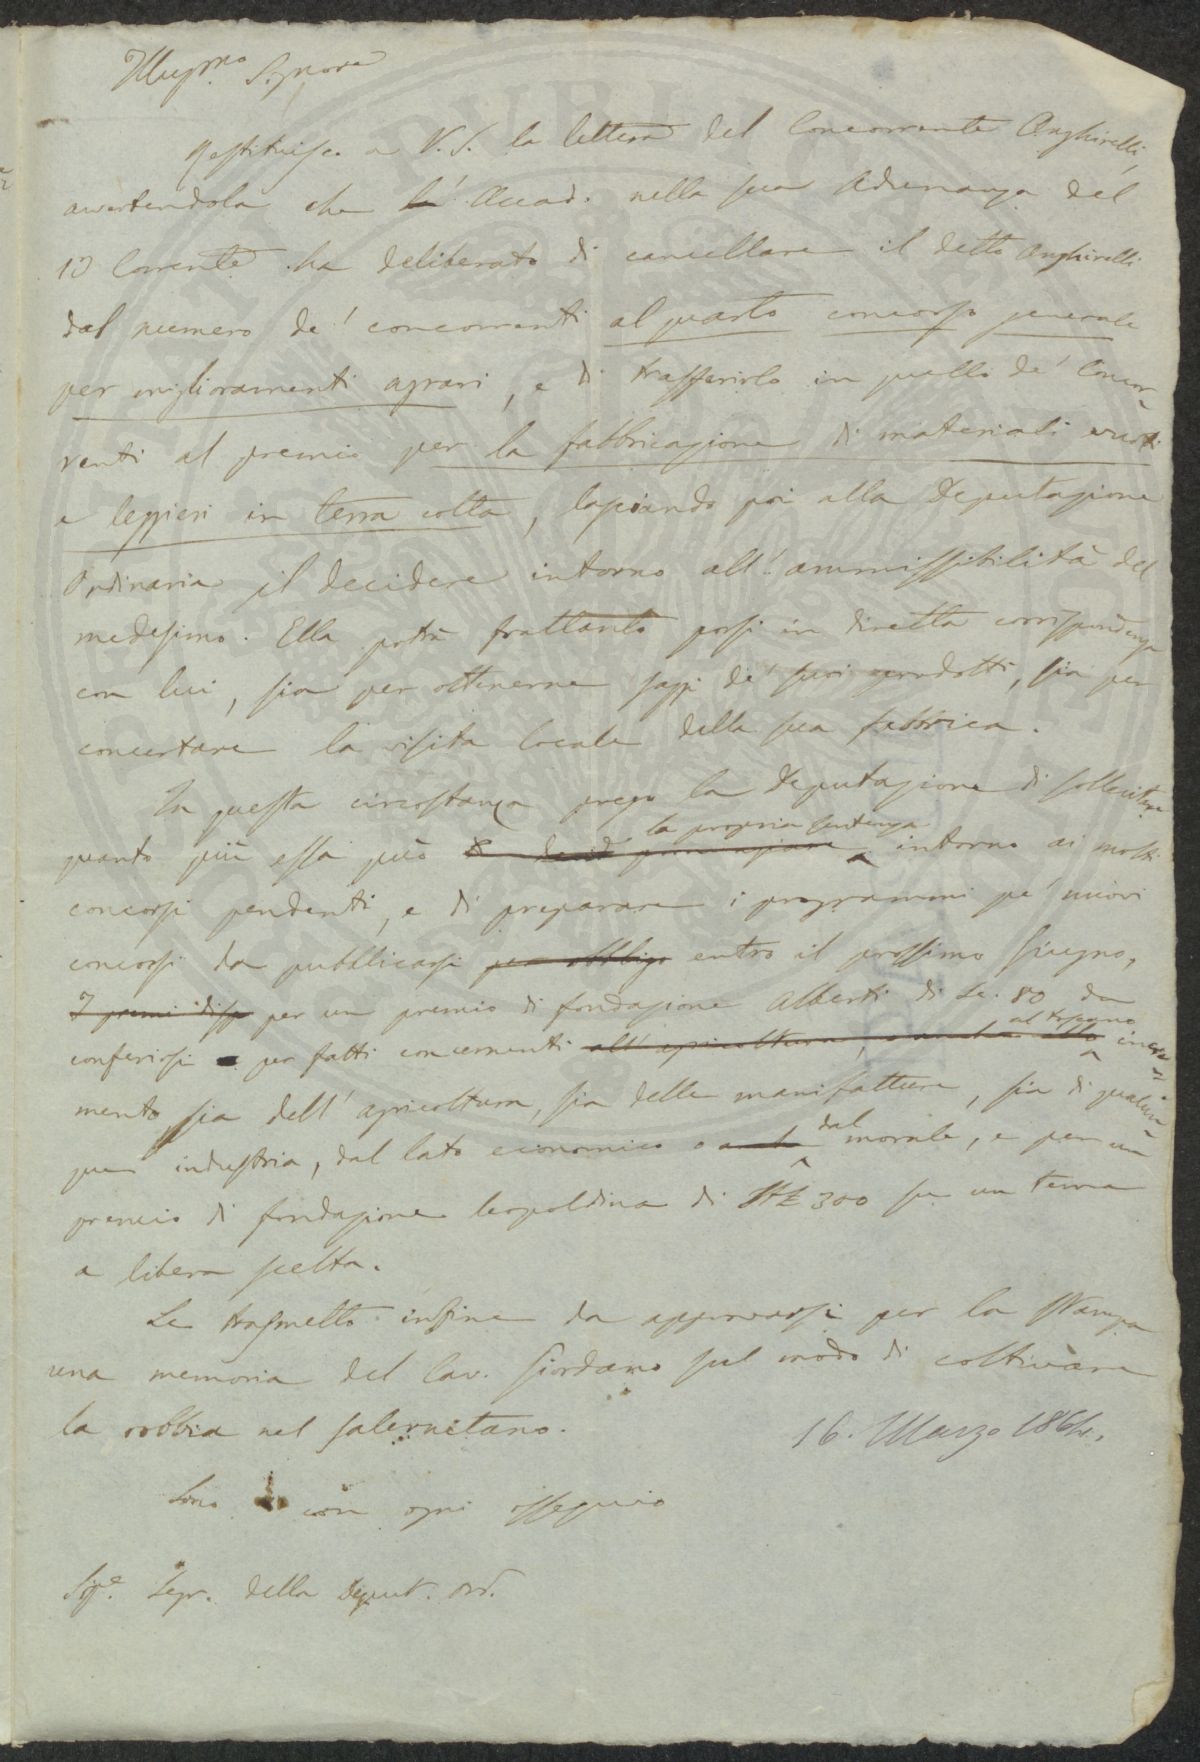 Illus.mo Signore
Restituisco a V. S. la lettera del Concorrente Anghirelli,
avvertendola che l' Accad. nella sua Adunanza del
13 Corrente ha deliberato di cancellare il detto Anghirelli
dal numero de' concorrenti al quarto concorso generale
per miglioramenti agrari, e di trasferirlo in quello de' Concor-
renti al premio per la fabbricazione di materiali vuoti
e leggieri in terra cotta, lasciando poi alla Deputazione
Ordinaria il decidere intorno all' ammissibilità del
medesimo. Ella potrà frattanto porsi in diretta corrispondenza
con lui, sia per ottenerne saggi de' suoi prodotti, sia per
concertare la visita locale della sua fabbrica.
In questa circostanza prego la Deputazione di sollecitare
quanto più essa può la propria sentenza intorno ai molti
concorsi pendenti, e di preparare i programmi pe' nuovi
concorsi da pubblicarsi per obbligo entro il prossimo Giugno,
I premi disp per un premio di fondazione Alberti di Sc. 80 da
conferirsi per fatti concernenti all' agricoltura, o anche allo al bisogno incre-
mento sia dell' agricoltura, sia delle manifatture, sia di qualun-
que industria, dal lato economico o dal morale, e per un
premio di fondazione Leopoldina di 300 su un tema
a libera scelta.
Le trasmetto infine da approvarsi per la stampa
una memoria del Cav. Giordano sul modo di coltivare
la robbia nel salernitano.
16. Marzo 1864.
Sono con ogni ossequio
Sig.e Segr. della Deput. Ord.